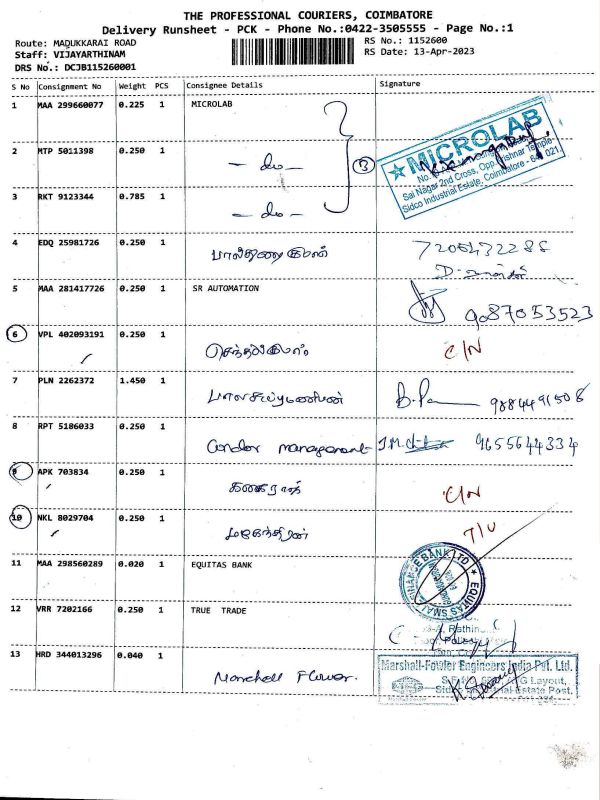 THE PROFESSIONAL COURIERS, COIMBATORE
Delivery Runsheet - PCK - Phone No.:0422-3505555 - Page No.:1
Route: MADUKKARAI ROAD
RS No.: 1152600
Staff: VIJAYARTHINAM
RS Date: 13-Apr-2023
DRS No.: DCJB115260001
S No Consignment No Weight PCS Consignee Details Signature
1 MAA 299660077 0.225 1 MICROLAB
MICROLAB
Sai Nagar 2nd Cross, Opp. Krishnar Temple
Sidco Industrial Estate, Coimbatore - 641 021
2 MTP 5011398 0.250 1 - do - 3
3 RKT 9123344 0.785 1 - do -
4 EDQ 25981726 0.250 1 7205432288
5 MAA 281417726 0.250 1 SR AUTOMATION 9087053523
6 VPL 402093191 0.250 1 C/N
7 PLN 2262372 1.450 1 பாலசுப்ரமணியன் 9884491508
8 RPT 5186033 0.250 1 Condor management 9655644334
9 APK 703834 0.250 1 கனகராஜ் C/N
10 NKL 8029704 0.250 1 மகேந்திரன் T/U
11 MAA 298560289 0.020 1 EQUITAS BANK
EQUITAS SMALL FINANCE BANK LTD
12 VRR 7202166 0.250 1 TRUE TRADE
13 HRD 344013296 0.040 1 Marshall Flower.
Marshall-Fowler Engineers India Pvt. Ltd.
G Layout,
Estate Post,